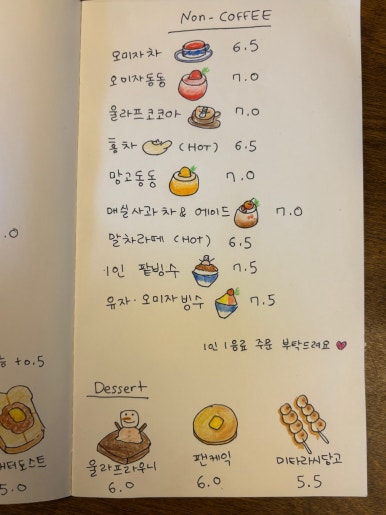 Non-COFFEE
오미자차 6.5
오미자동동 7.0
울라프코코아 7.0
홍차 (HOT) 6.5
망고동동 7.0
매실사과차 & 에이드 7.0
말차라떼 (HOT) 6.5
1인 팥빙수 7.5
유자·오미자빙수 7.5
1인 1음료 주문 부탁드려요
.0
+0.5
Dessert
터토스트
5.0
울라프라우니
6.0
팬케익
6.0
미타라시당고
5.5